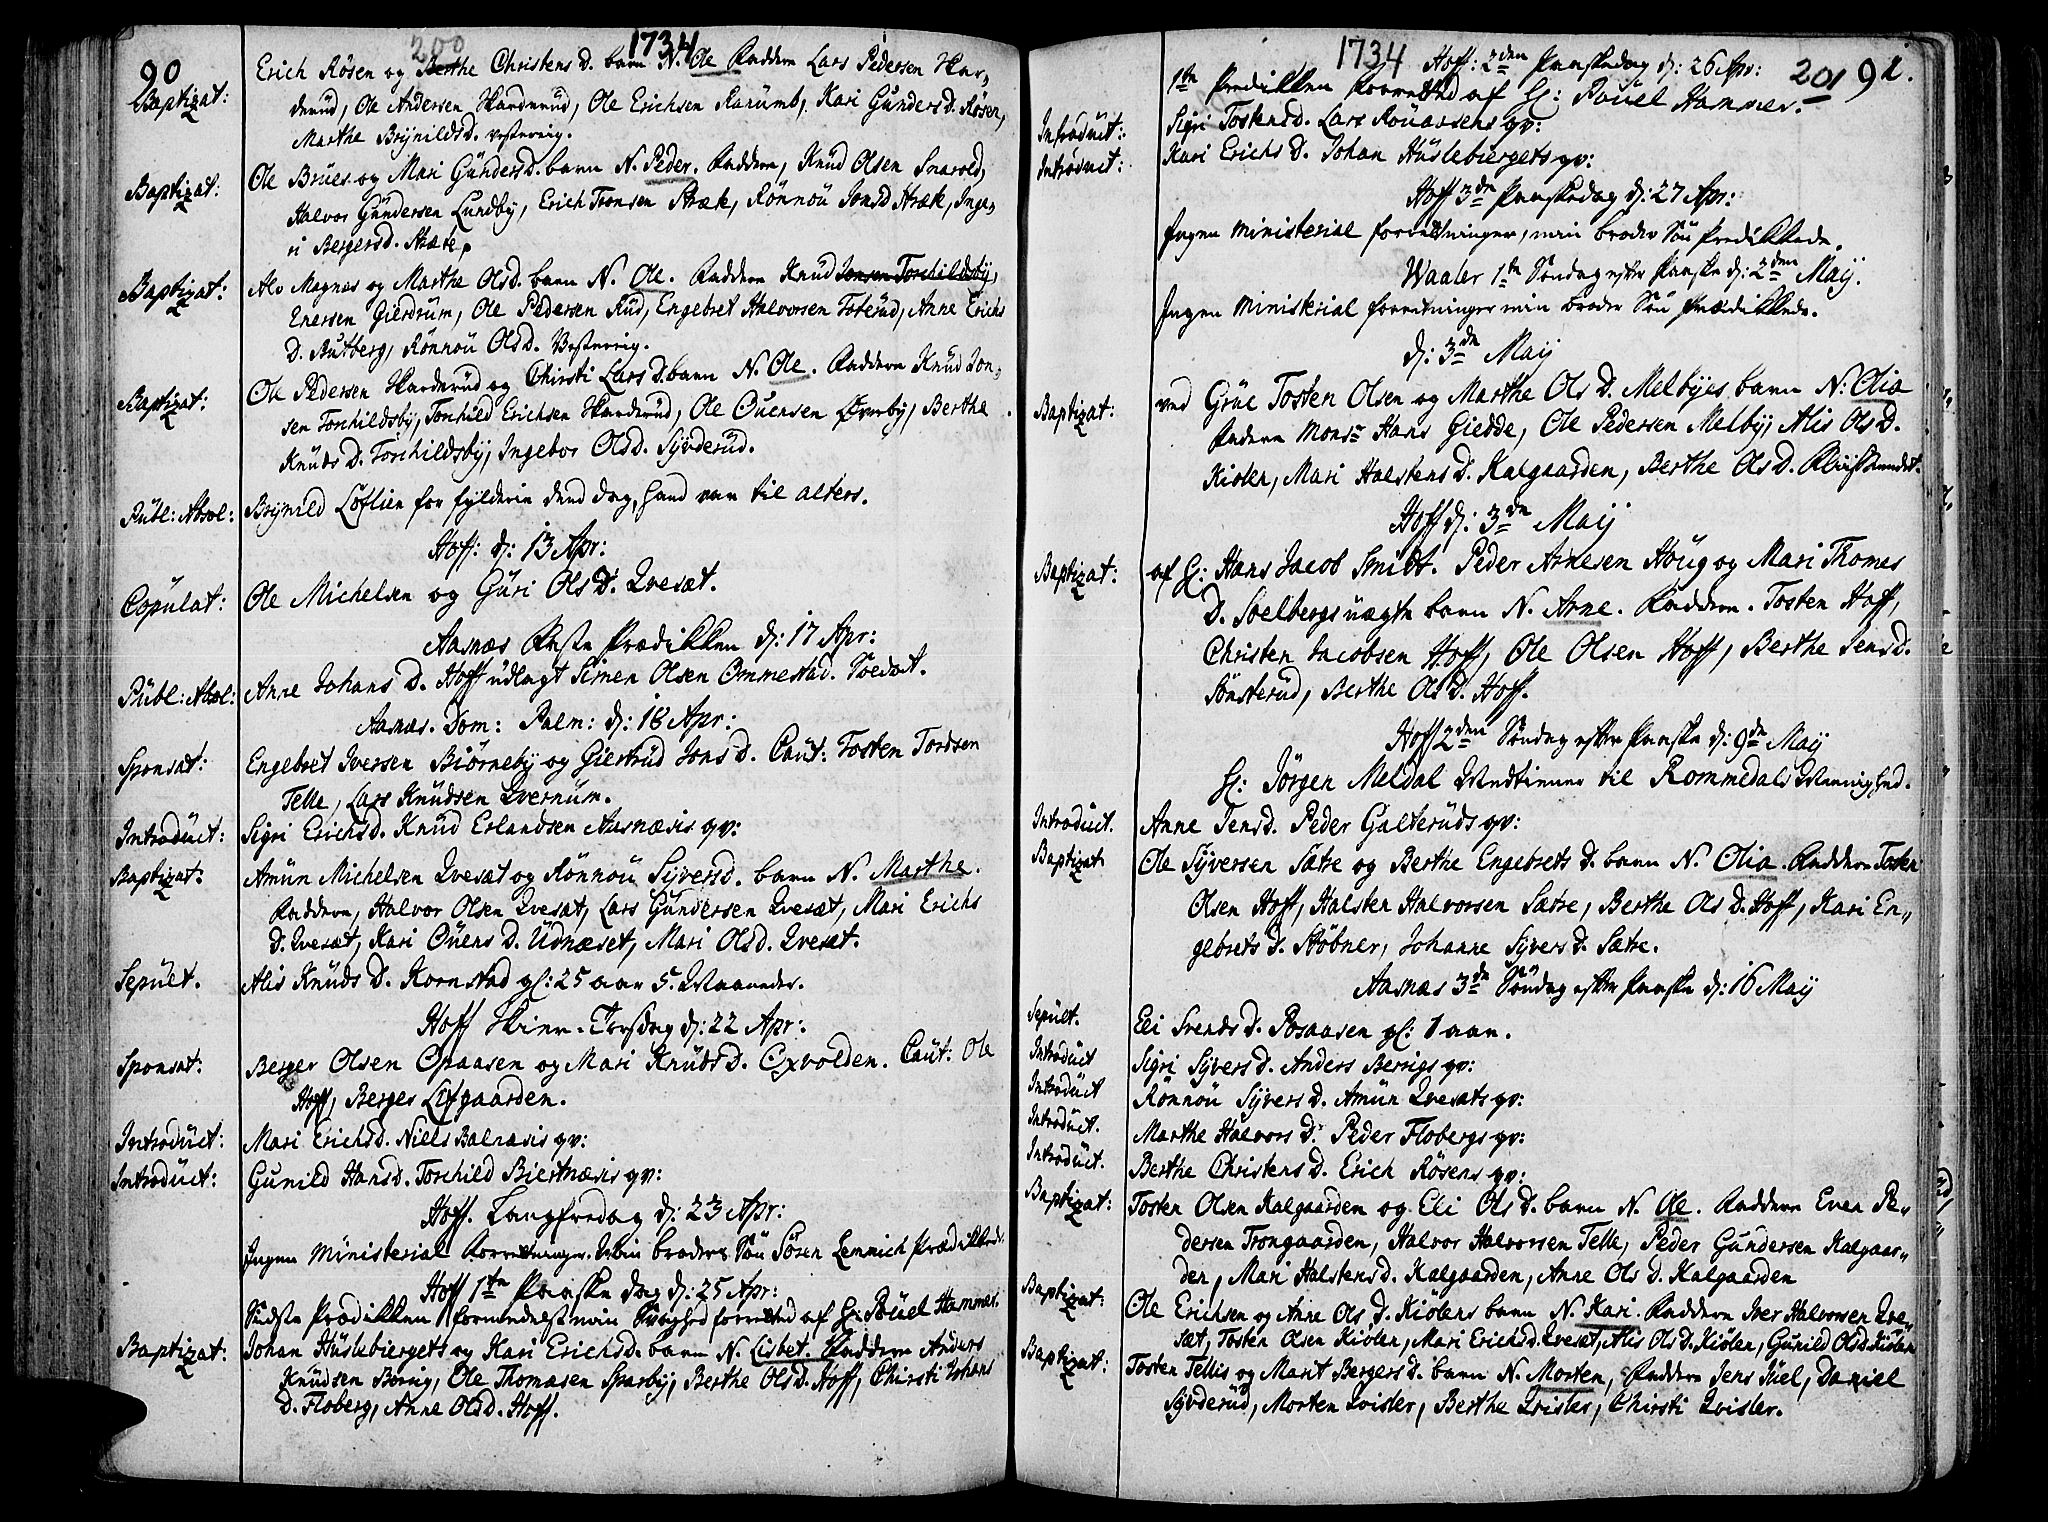 90
200
1734
Baptizat:
Erich Rösen og Berthe Christens D. barn N. Ole Faddere Lars Pedersen Skar-
derud, Ole Andersen Skarderud, Ole Erichsen Rarumb, Kari Gunders D. Rösen,
Marthe Brÿnilds D. vesterrig.
Baptizat:
Ole Brües og Mari Günders D. barn N. Peder. Faddere, Knud Olsen Snarold,
Halvor Gündersen Lundby, Erich Tronsen Stræk, Rönnou Jonsd Stræk, Inge-
ri Bergersd. Stræte.
Baptizat:
Alv Magnæs og Marthe Olsd. barn N. Ole. Faddere Knud Jonsen Torchildsby,
Enersen Gierdrum, Ole Pedersen Rud, Engebret Halvorsen Toterud, Anne Erichs
D. Butberg, Rönnou Olsd. Vesterrig.
Baptizat:
Ole Pedersen Skarderud og Chirsti Lars D. barn N. Ole. Faddere Knud Jon-
sen Torchildsby, Torchild Erichsen Skarderud, Ole Ouensen Øverby, Berthe
Knuds D. Torchildsby, Ingebor Olsd. Syvderud.
Publ: Absol:
Brÿnild Löflien for fylderie dend dag, hand var til alters.
Hoff: d: 13 Apr:
Copulat:
Ole Michelsen og Guri Olsd. Qvesæt.
Aasnæs Feste Prædikken d: 17 Apr:
Publ: Absol:
Anne Johans D. Hoff udlagt Simen Olsen Ommestad. Soldat.
Aasnæs. Dom: Palm: d: 18 Apr:
Sponsat:
Engebret Iversen Biörneby og Giertrud Jons D. Caut: Tosten Tordsen
Telle, Lars Knudsen Qvernum.
Introduct:
Sigri Erichsd. Knud Erlandsen Aasnæsis qv:
Baptizat:
Amun Michelsen Qvesæt og Rönnou Syversd. barn N. Marthe.
Faddere, Halvor Olsen Qvesæt, Lars Gundersen Qvesæt, Mari Erichs
D. Qvesæt, Kari Ouens D. Udnæset, Mari Olsd. Qvesæt.
Sepult.
Alis Knuds D. Kornstad gl: 25 aar 5. Maaneder.
Hoff Skier-Torsdag d: 22 Apr:
Sponsat:
Berger Olsen Opaasen og Mari Knuds D. Oxvolden. Caut: Ole
Hoff, Berger Lifgaarden.
Introduct:
Mari Erichsd. Niels Balnæsis qv:
Introduct:
Gunild Hansd. Torchild Biertnæsis qv:
Hoff. Langfredag d: 23 Apr:
Ingen Ministerial forretninger. Min broders Sön Sören Lemmich Prædikkede.
Hoff 1te Paaske dag d: 25 Apr:
Sidste Prædikken formedelst min Svaghed forretted af Hr: Pouel Hammer.
Baptizat:
Johan Huslebiergets og Kari Erichsd. barn N. Lisbet. Faddere Anders
Knudsen Berrig, Ole Thomasen Sparby, Berthe Olsd. Hoff, Chirsti Johans
D. Floberg, Anne Olsd. Hoff.
1734
201
91.
Hoff: 2den Paaskedag d: 26 Apr:
1te Predikken forrettet af Hr: Pouel Hammer.
Introduct:
Sigri Tostensd. Lars Rouaasens qv:
Introduct:
Kari Erichs D. Johan Huslebiergets qv:
Hoff 3de Paaskedag d: 27 Apr:
Ingen Ministerial forretninger, min broder Sön Predikkede.
Waaler 1te Söndag efter Paaske d: 2den Maij.
Ingen Ministerial forretninger min broder Sön Prædikkede.
d: 3de Maij
Baptizat:
ved Grue Tosten Olsen og Marthe Ols D. Melbyes barn N: Olia
Faddere Monsr Hans Giedde, Ole Pedersen Melby, Alis Ols D.
Kiolen, Mari Halstens D. Kalgaarden, Berthe Ols D.
Hoff d: 3de Maij
Baptizat:
af Hr: Hans Jacob Smidt. Peder Arnesen Houg og Mari Thomes
D. Soelbergs uægte barn N. Arne. Faddere. Tosten Hoff,
Christen Jacobsen Hoff, Ole Olsen Hoff, Berthe Jens D.
Sönsterud, Berthe Ols D. Hoff.
Hoff 2den Söndag efter Paaske d: 9de Maij
Hr: Jörgen Meldal Medtienner til Rommedals Menighed.
Introduct.
Anne Jensd. Peder Galteruds qv:
Baptizat
Ole Syversen Sætre og Berthe Engebrets D. barn N. Olia. Faddere Tosten
Olsen Hoff, Halsten Halvorsen Sætre, Berthe Ols D. Hoff, Kari En-
gebrets D. Stöbner, Johanne Syvers D. Sætre.
Aasnæs 3de Söndag efter Paaske d: 16 Maij
Sepult.
Eli Svends D. Posaasen gl: 1 aar.
Introduct
Sigri Syvers D. Anders Berrigs qv:
Introduct
Rönnou Syvers D. Amun Qvesæts qv:
Introduct.
Marthe Halvors D. Peder Flobergs qv:
Introduct.
Berthe Christens D. Erich Rösens qv:
Baptizat:
Tosten Olsen Kalgaarden og Eli Ols D. barn N. Ole. Faddere Even Pe-
dersen Trongaarden, Halvor Halvorsen Telle, Peder Gundersen Kalgaar-
den, Mari Halstens d. Kalgaarden, Anne Ols d. Kalgaarden
Baptizat:
Ole Erichsen og Anne Ols D. Kiölens barn N. Kari. Faddere Iver Halvorsen Qve-
sæt, Tosten Olsen Kiölen, Mari Erichsd. Qvesæt, Alis Ols D. Kiölen, Gunild Olsd. Kiölen
Baptizat:
Tosten Tellis og Marit Bergers d. barn N. Morten, Faddere Jens Juel, Daniel
Syvderud, Morten Qvisler, Berthe Qvisler, Chirsti Qvisler.